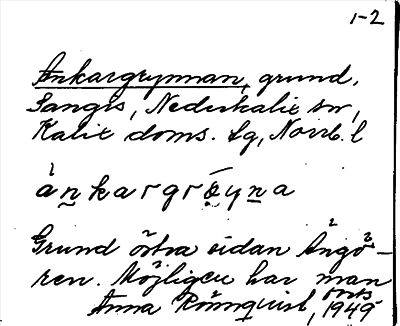 1-2
Ankargrynnan, grund,
Sangis, Nederkalix sn,
Kalix doms. lg, Norrb. l
ànkargrǿyna
Grund östra sidan Ångö-
ren. Möjligen har man
forts
Anna Rönnqvist, 1949